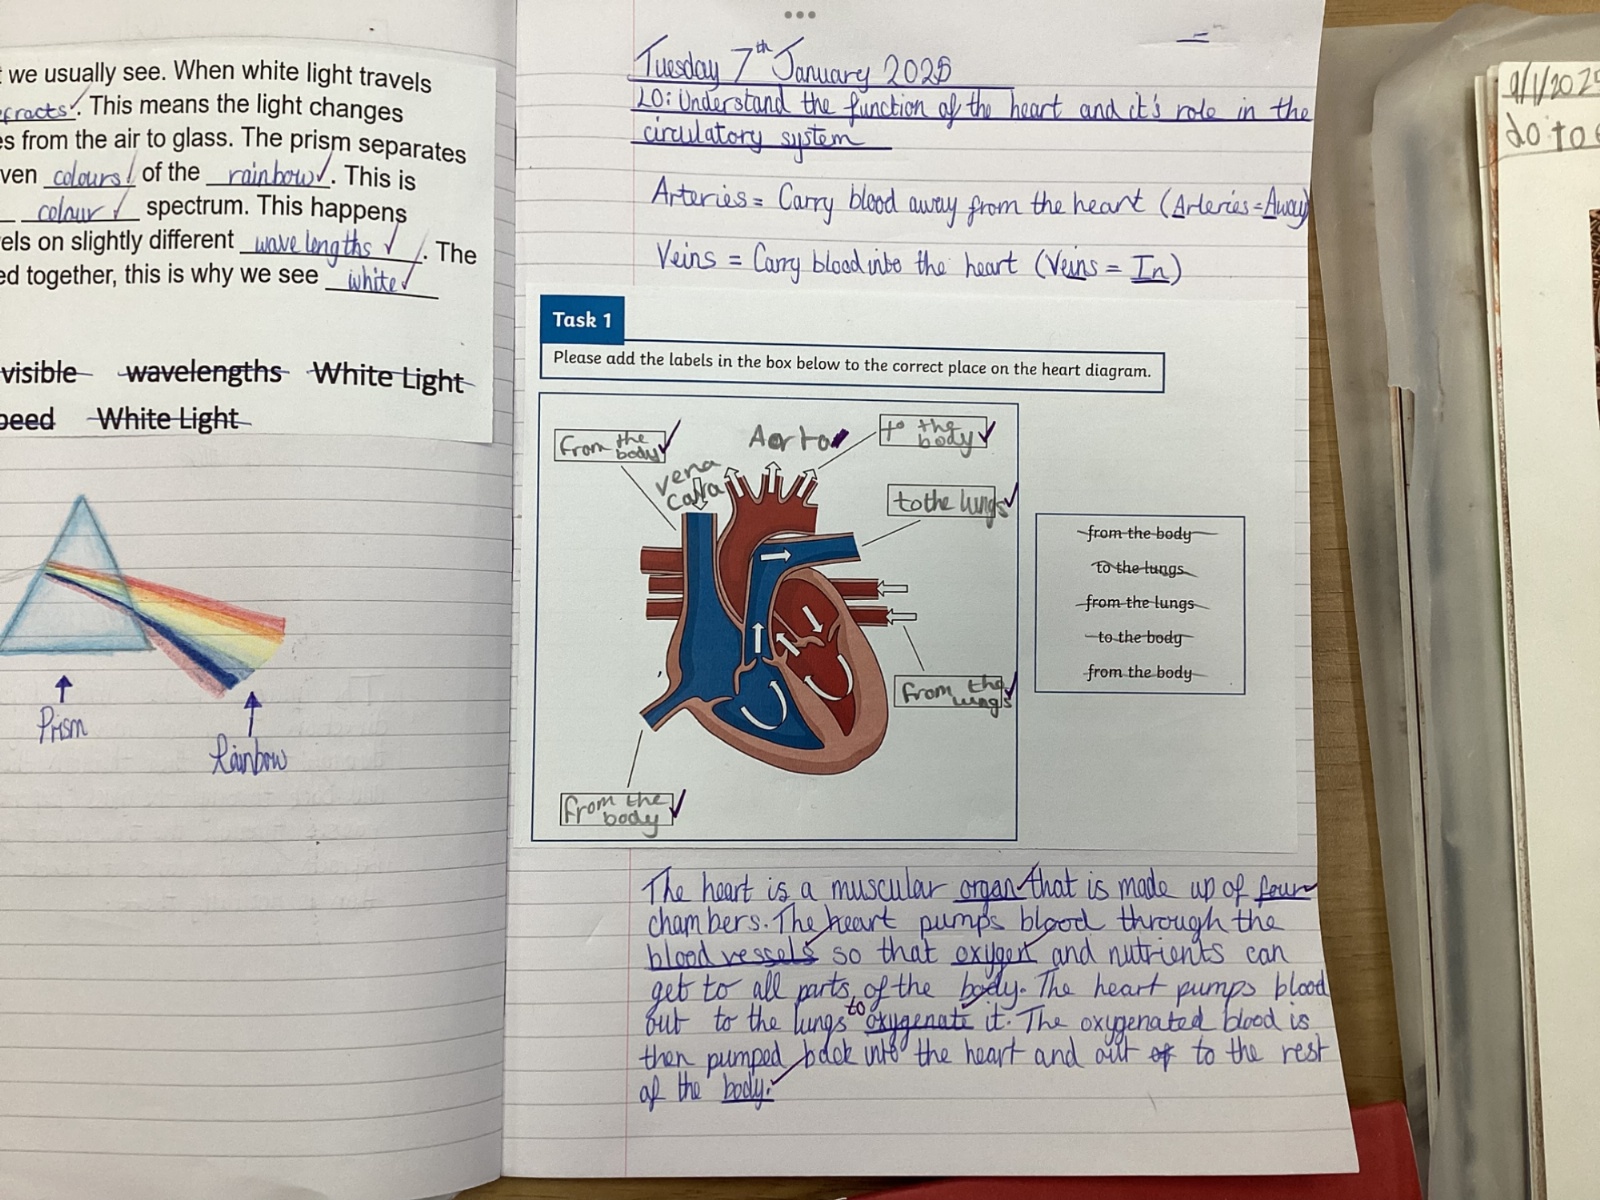 we usually see. When white light travels
efracts. This means the light changes
es from the air to glass. The prism separates
ven colours of the rainbow. This is
colour spectrum. This happens
els on slightly different wave lengths. The
ed together, this is why we see white
visible wavelengths White Light
peed White Light
Prism
Rainbow
Tuesday 7th January 2025
LO: Understand the function of the heart and it's role in the
circulatory system
Arteries = Carry blood away from the heart (Arteries = Away)
Veins = Carry blood into the heart (Veins = In)
Task 1
Please add the labels in the box below to the correct place on the heart diagram.
from the
body
Aorta
to the
body
vena
cava
to the lungs
from the
lungs
from the
body
from the body
to the lungs
from the lungs
to the body
from the body
The heart is a muscular organ that is made up of four
chambers. The heart pumps blood through the
blood vessels so that oxygen and nutrients can
get to all parts of the body. The heart pumps blood
out to the lungs to oxygenate it. The oxygenated blood is
then pumped back into the heart and out of to the rest
of the body.
9/1/2025
do to